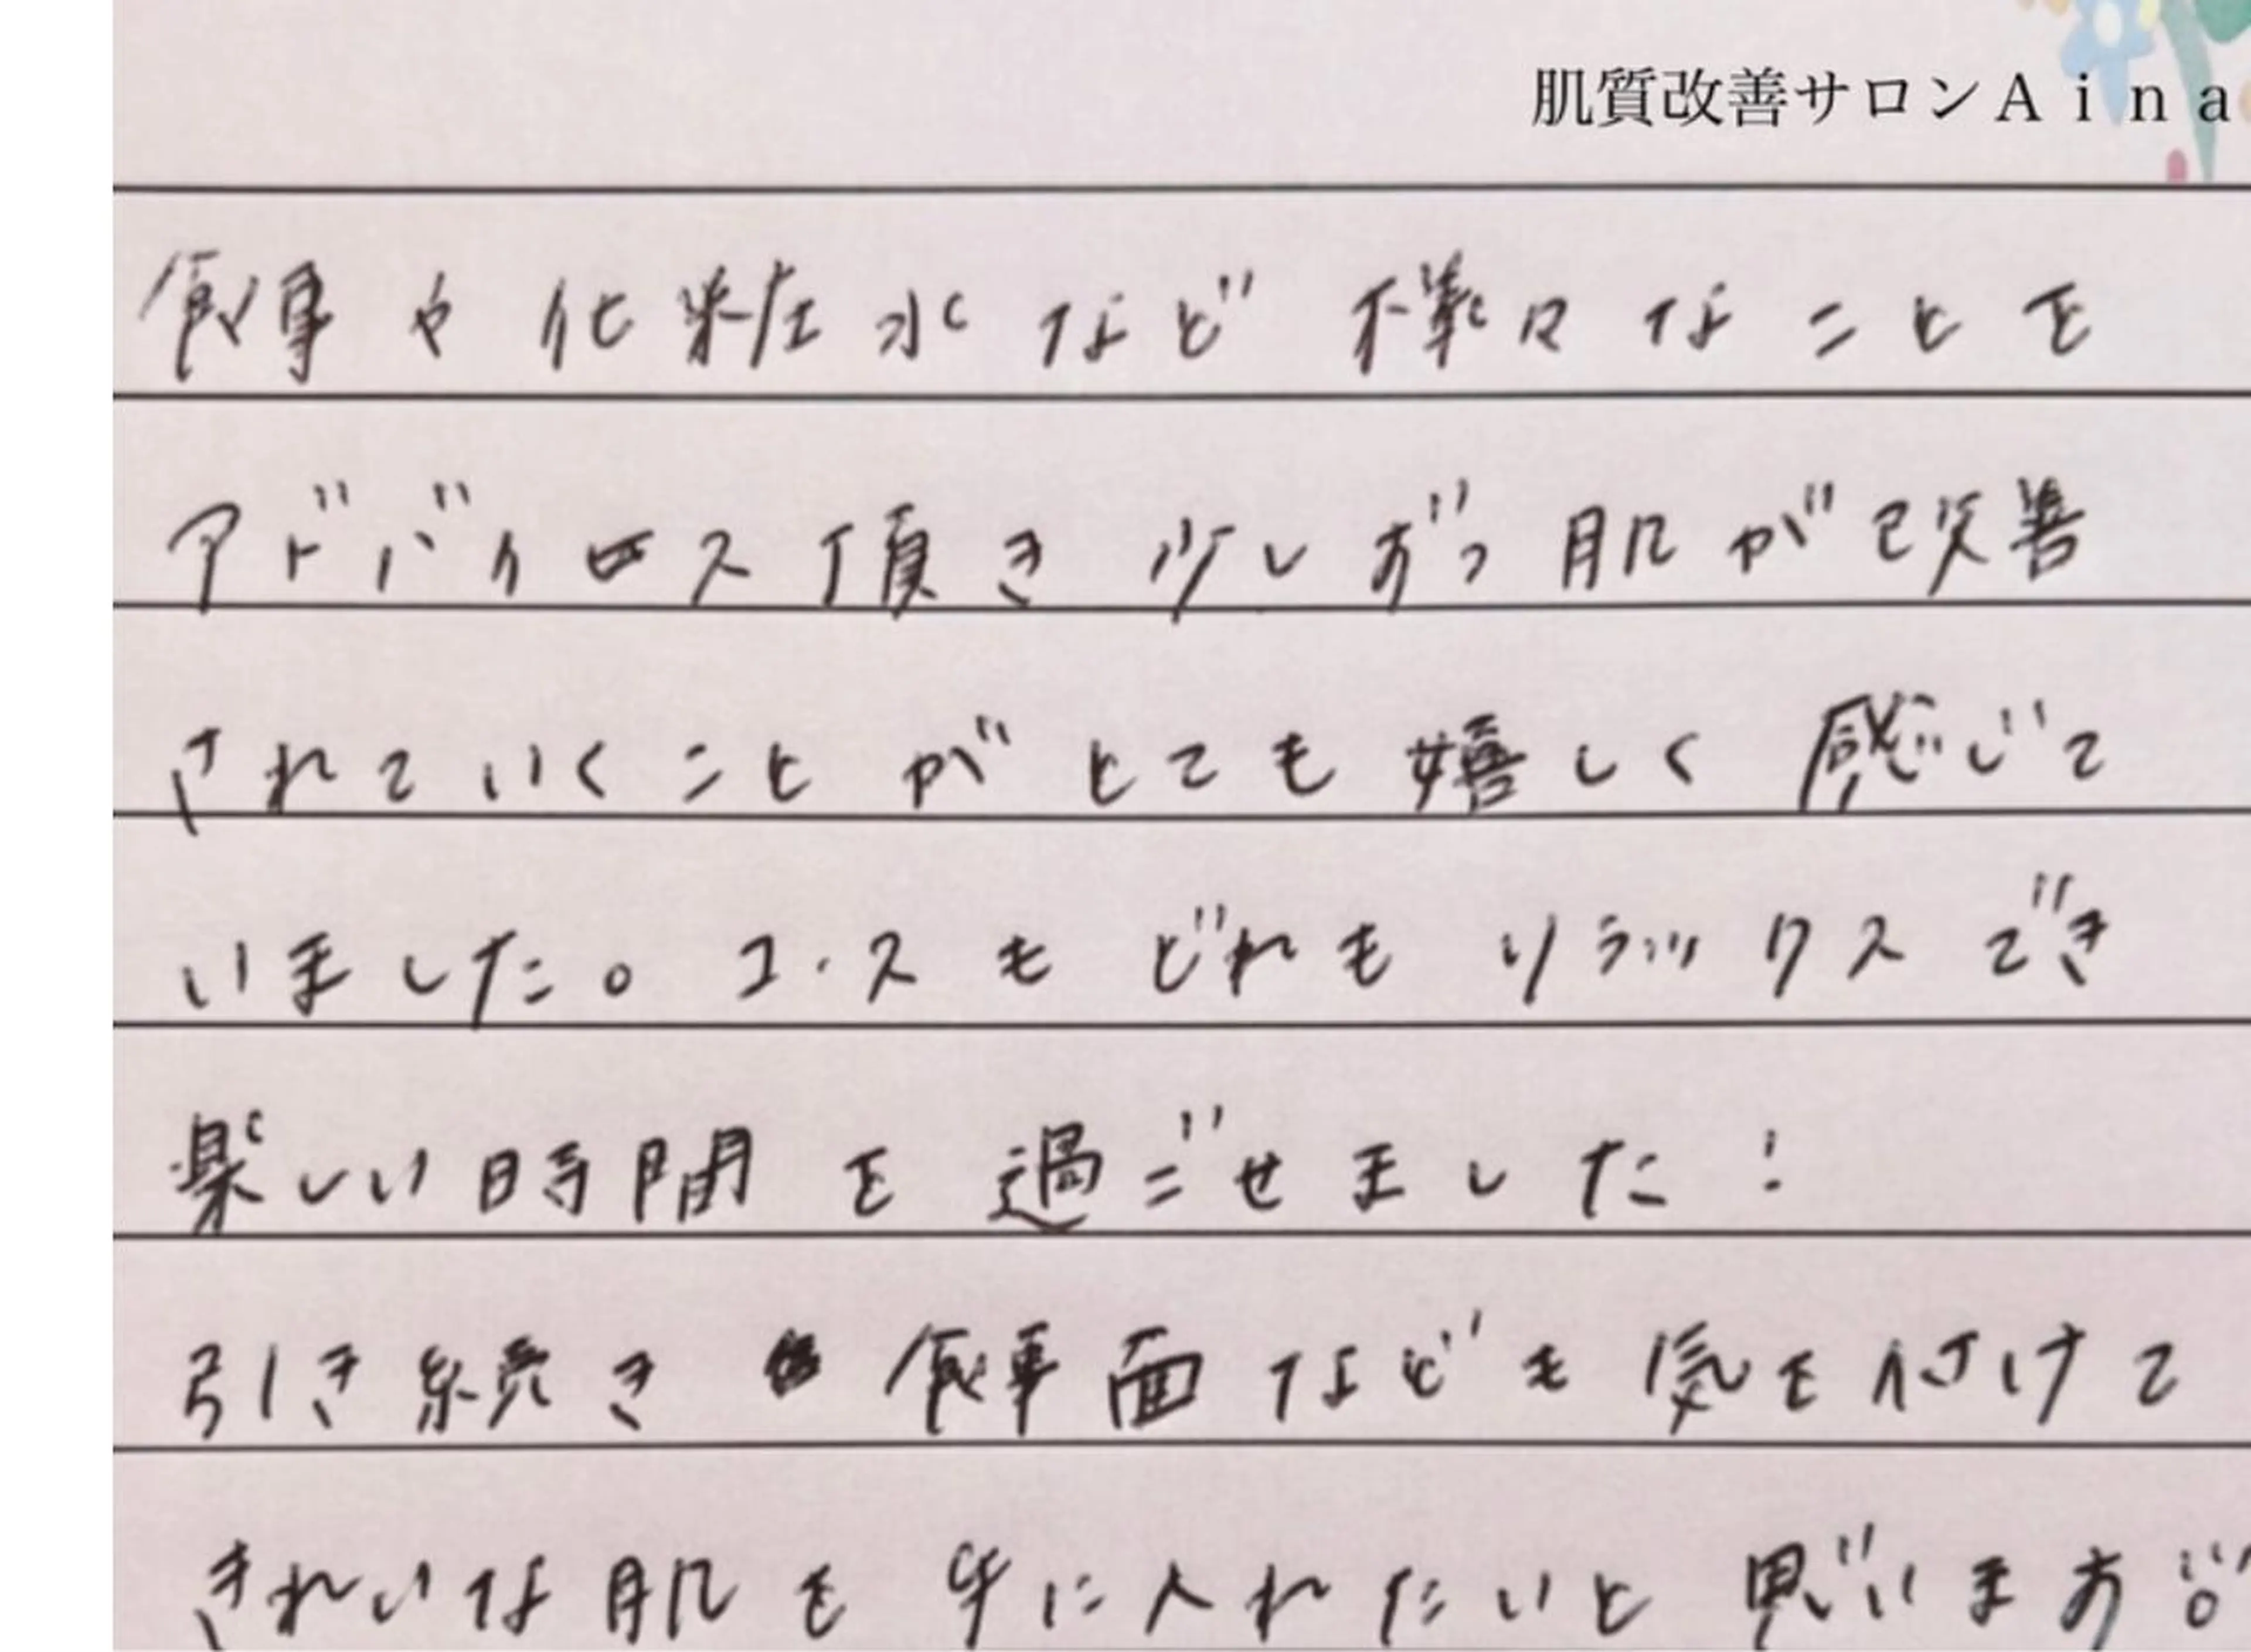 肌質改善サロンAina
食事や化粧水など様々なことを
アドバイス頂き少しずつ肌が改善
されていくことがとても嬉しく感じて
いました。コースもどれもリラックスでき
楽しい時間を過ごせました!
引き続き食事面なども気を付けて
きれいな肌を手に入れたいと思います。